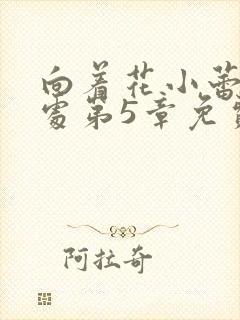 向着花小蕾深
处第5章免费
阿拉奇